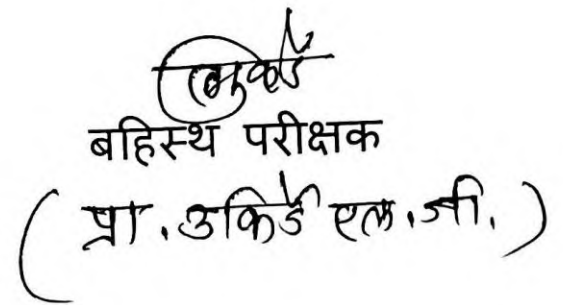 बहिस्थ परीक्षक
(प्रा. उकिर्डे एल. जी.)